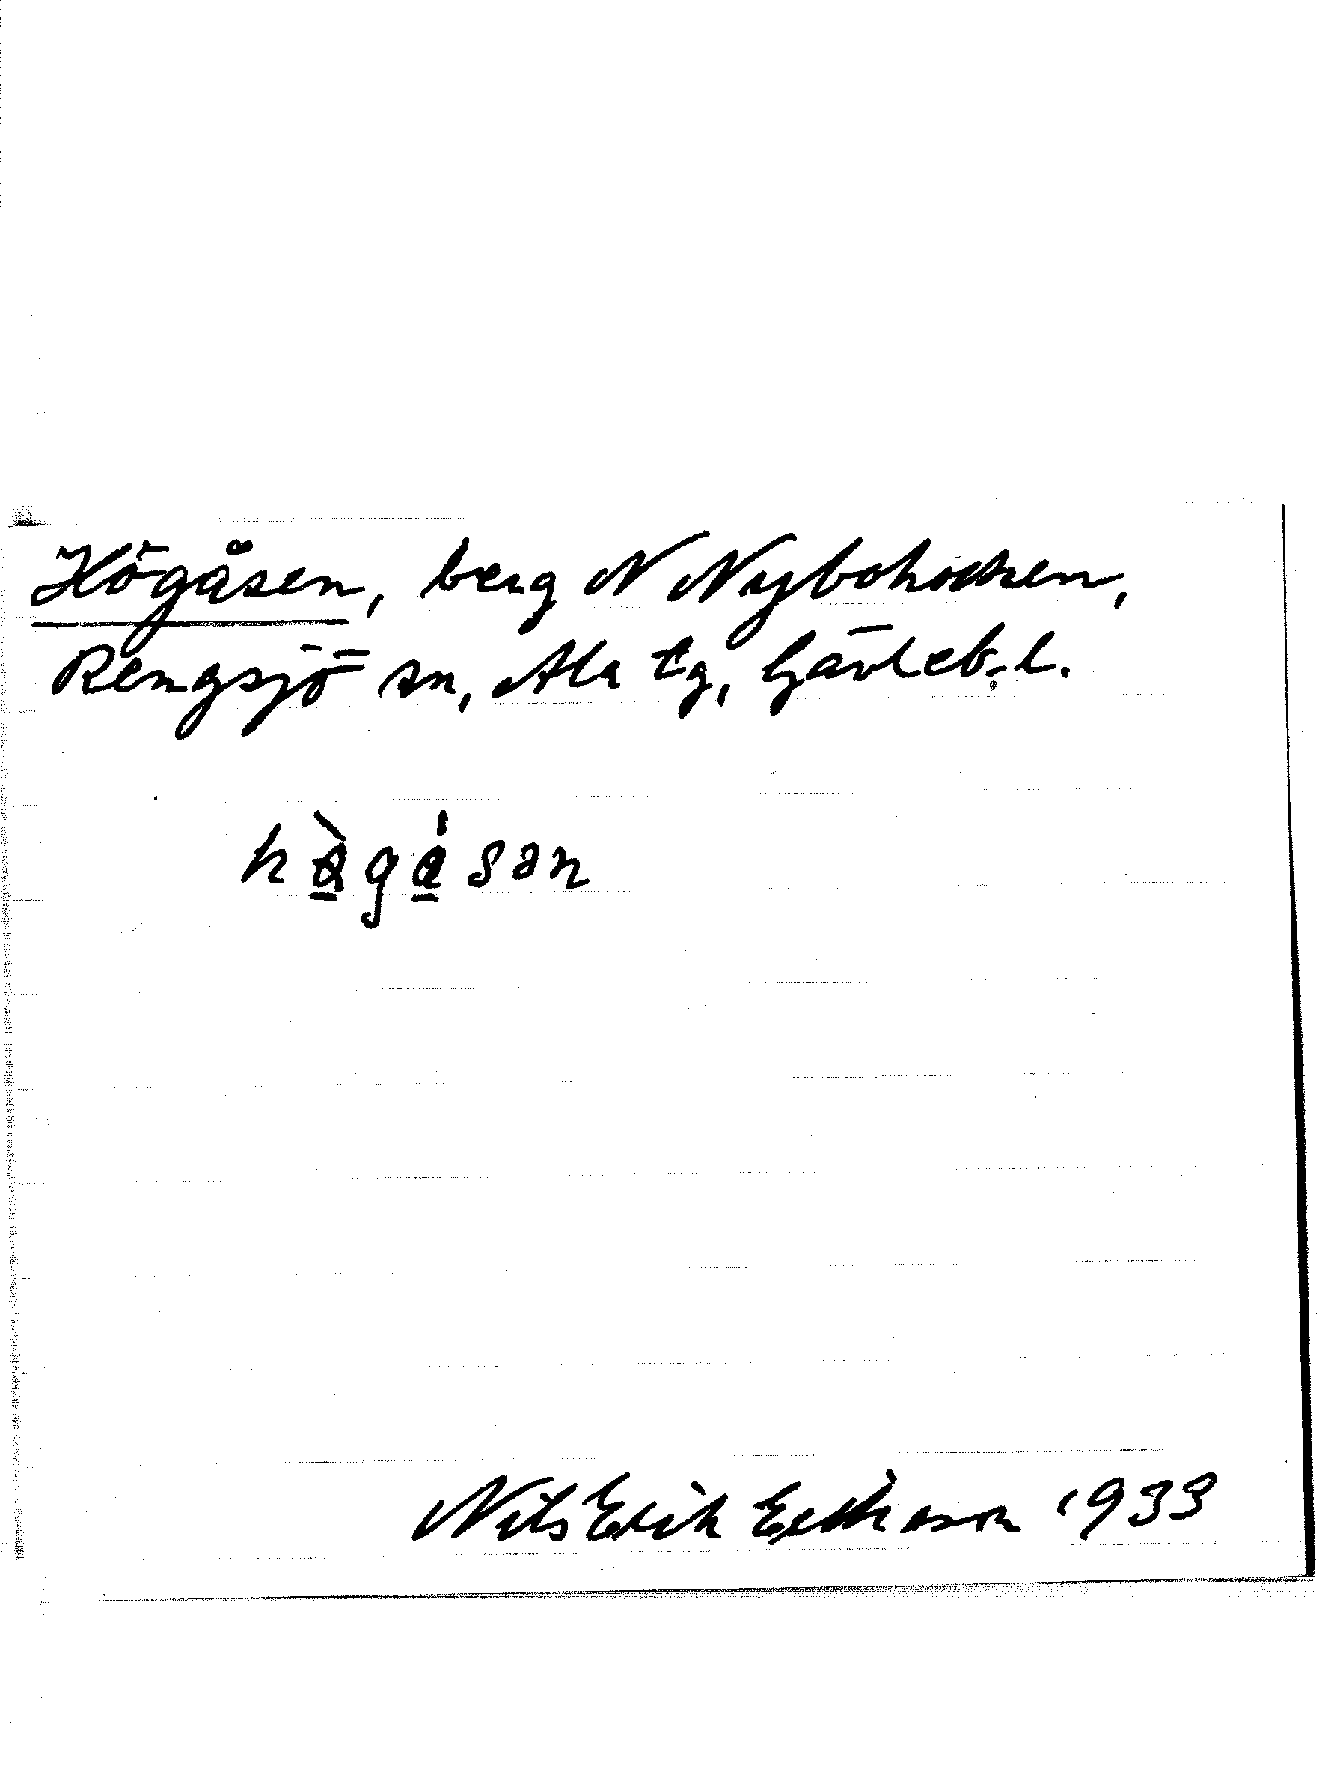 Högåsen, berg N Nyboholsen,
Rengsjö sn, Ala tg, Gävleb. l.
Nils Erik Eriksson 1933